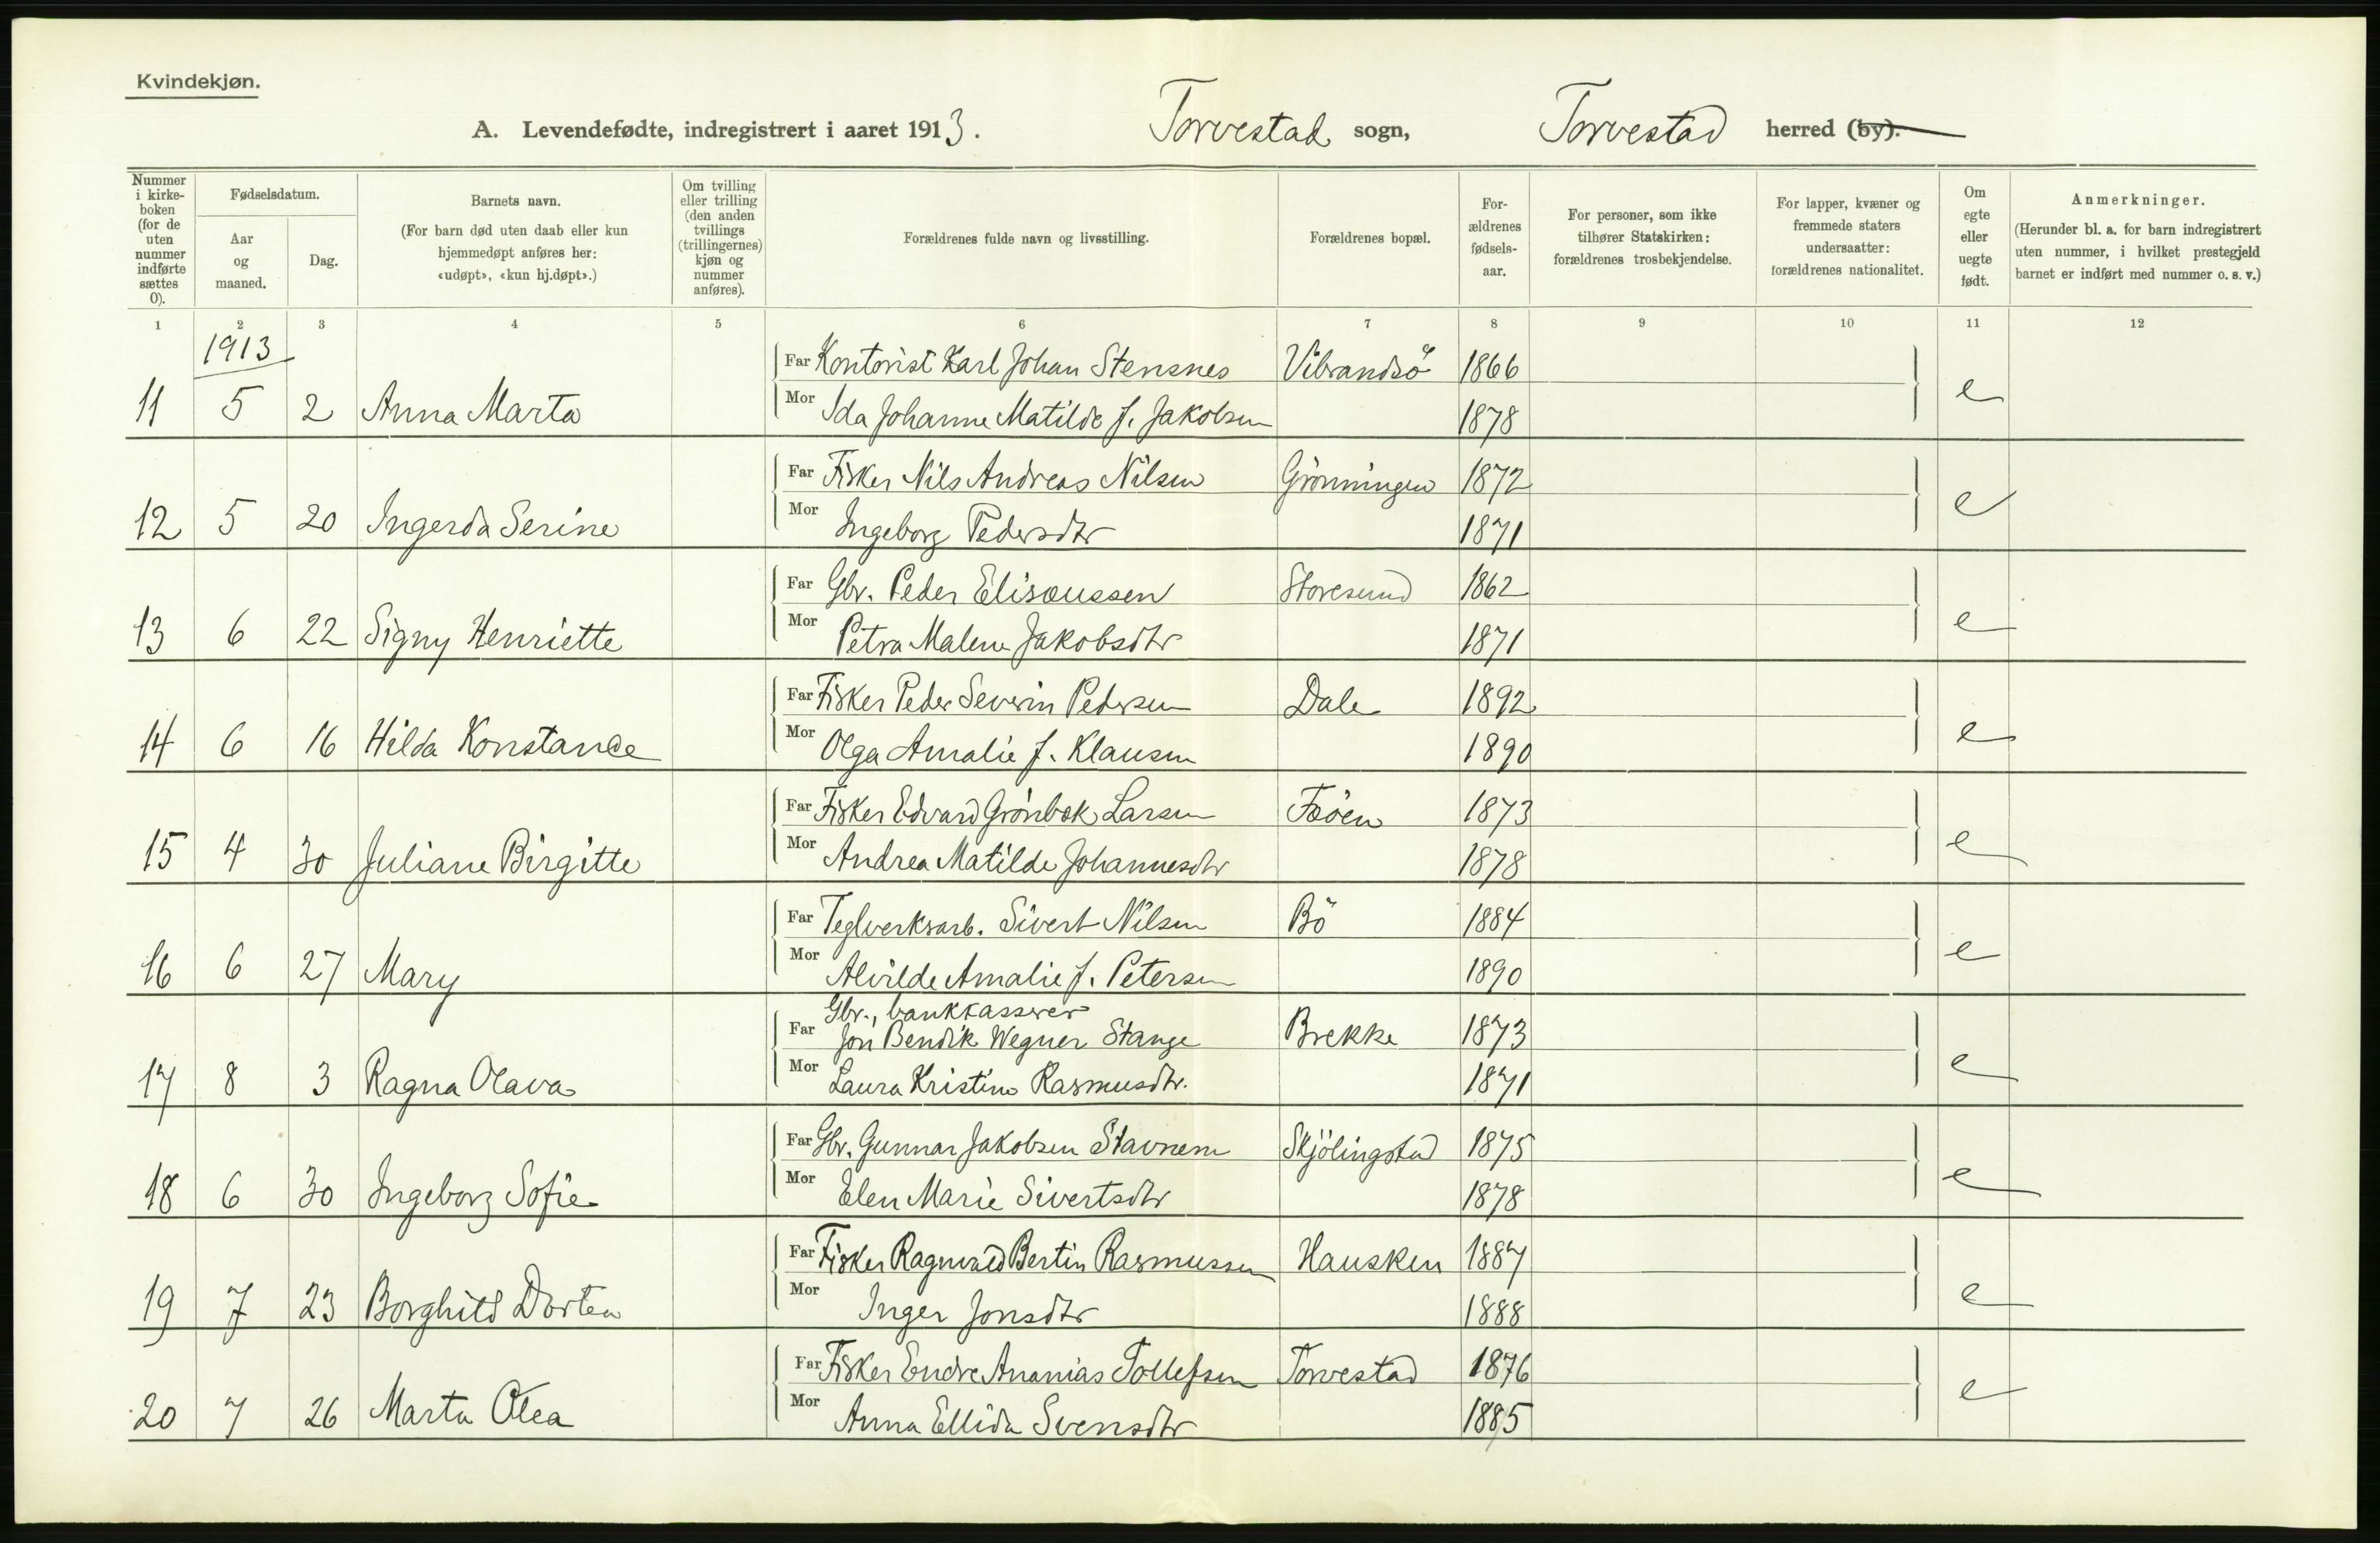 Kvindekjøn.
A. Levendefødte, indregistrert i aaret 1913. Torvestad sogn, Torvestad herred (by).
Nummer i kirke-boken (for de uten nummer indførte sættes 0).
Fødselsdatum.
Aar og maaned.
Dag.
Barnets navn.
(For barn død uten daab eller kun hjemmedøpt anføres her: «udøpt», «kun hj.døpt».)
Om tvilling eller trilling (den anden tvillings (trillingernes) kjøn og nummer anføres).
Forældrenes fulde navn og livsstilling.
Forældrenes bopæl.
For-ældrenes fødsels-aar.
For personer, som ikke tilhører Statskirken: forældrenes trosbekjendelse.
For lapper, kvæner og fremmede staters undersaatter: forældrenes nationalitet.
Om egte eller uegte født.
Anmerkninger.
(Herunder bl. a. for barn indregistrert uten nummer, i hvilket prestegjeld barnet er indført med nummer o. s. v.)
1 2 3 4 5 6 7 8 9 10 11 12
1913
Far Kontorist Karl Johan Stensnes Vibrandsö 1866
11 5 2 Anna Marta Mor Ida Johanne Matilde f. Jakobsen 1878 e
Far Fisker Nils Andreas Nilsen Grönningen 1872
12 5 20 Ingerda Serine Mor Ingeborg Pedersdtr 1871 e
Far Gbr. Peder Elisæussen Storesund 1862
13 6 22 Signy Henriette Mor Petra Malene Jakobsdtr 1871 e
Far Fisker Peder Severin Pedersen Dale 1892
14 6 16 Hilda Konstance Mor Olga Amalie f. Klausen 1890 e
Far Fisker Edvard Grönbæk Larsen Fæöen 1873
15 4 30 Juliane Birgitte Mor Andrea Matilde Johannesdtr 1878 e
Far Teglverksarb. Sivert Nilsen Bö 1884
16 6 27 Mary Mor Alvilde Amalie f. Petersen 1890 e
Gbr., bankkasserer
Far Jon Bendik Wegner Stange Brekke 1873
17 8 3 Ragna Olava Mor Laura Kristine Rasmusdtr. 1871 e
Far Gbr. Gunnar Jakobsen Stavnem Skjölingstad 1875
18 6 30 Ingeborg Sofie Mor Elen Marie Sivertsdtr 1878 e
Far Fisker Ragnvald Bertin Rasmussen Hausken 1887
19 7 23 Borghild Dortea Mor Inger Jonsdtr 1888 e
Far Fisker Endre Ananias Tollefsen Torvestad 1876
20 7 26 Marta Olea Mor Anna Ellida Svensdtr 1885 e